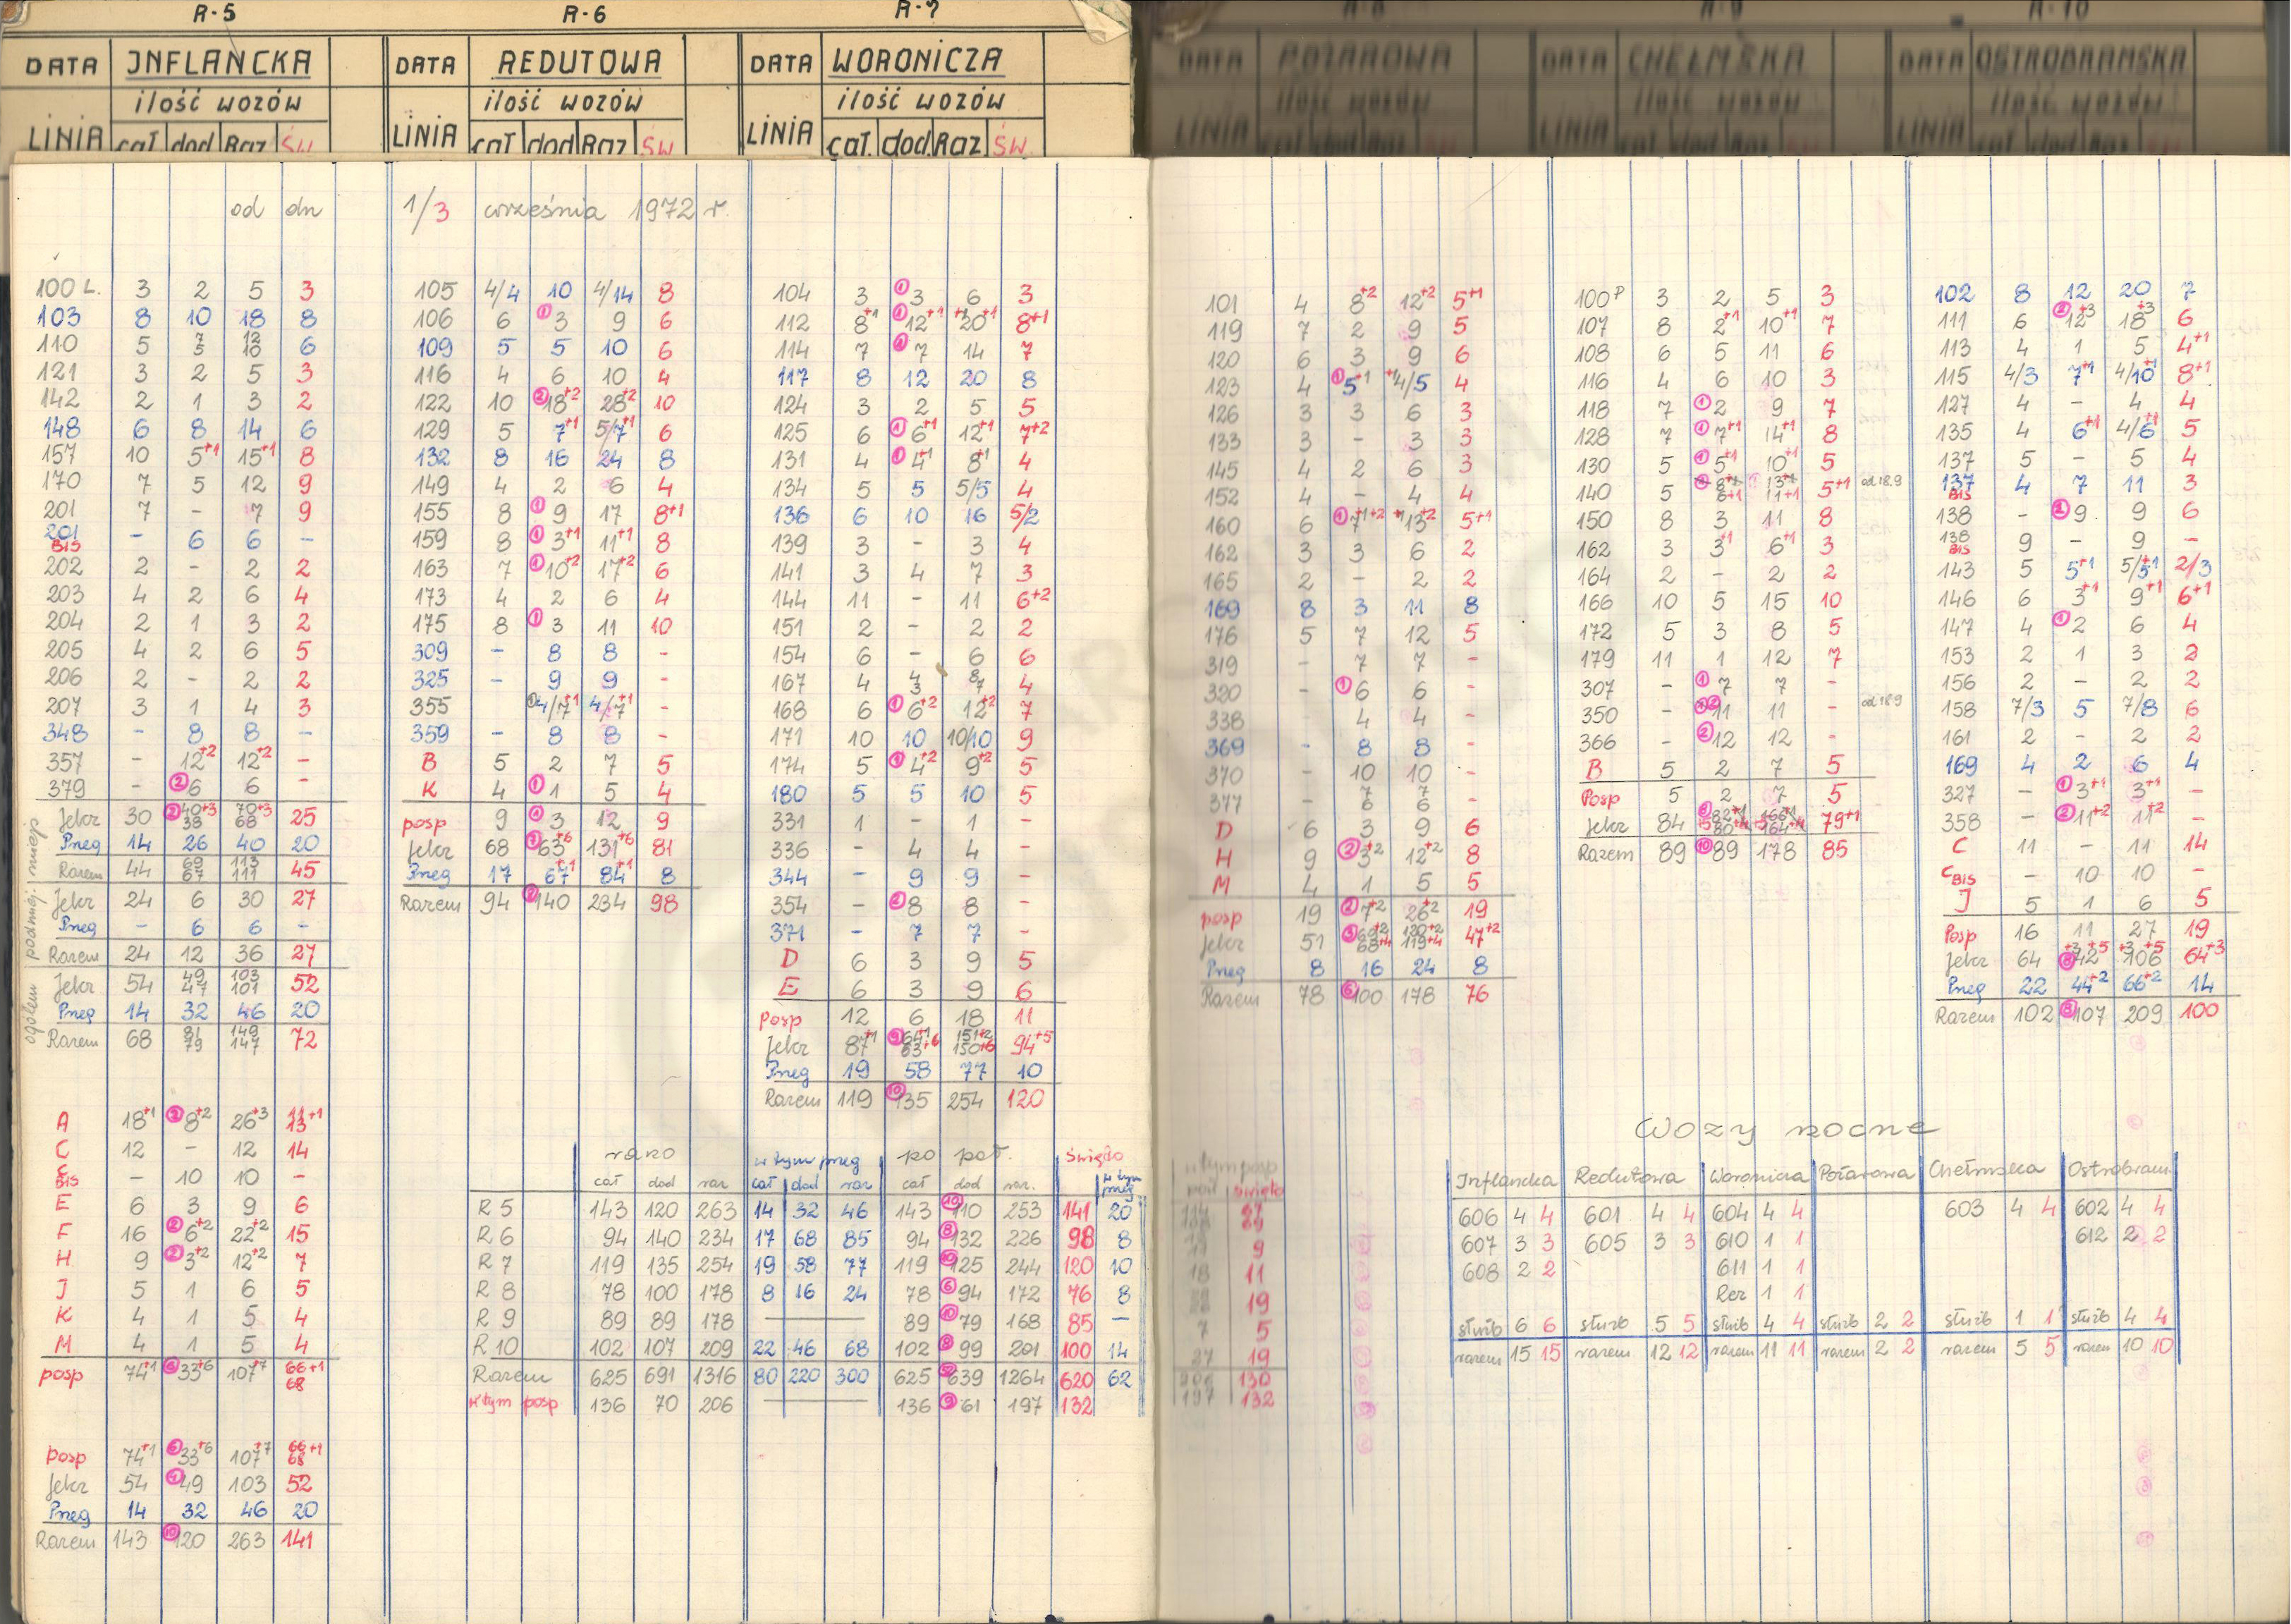 R-5
INFLANCKA
DATA
ilość wozów
LINIA cał dod Raz ŚW.
od dn
100 L. 3 2 5 3
103 8 10 18 8
110 5 7 5 12 10 6
121 3 2 5 3
142 2 1 3 2
148 6 8 14 6
157 10 5+1 15+1 8
170 7 5 12 9
201 7 - 7 9
201 BIS - 6 6 -
202 2 - 2 2
203 4 2 6 4
204 2 1 3 2
205 4 2 6 5
206 2 - 2 2
207 3 1 4 3
348 - 8 8 -
357 - 12+2 12+2 -
379 - ② 6 6 -
miejs
Jelcz 30 ② 40+3 38 70+3 68 25
Pneg 14 26 40 20
Razem 44 69 67 113 111 45
podmiej.
Jelcz 24 6 30 27
Pneg - 6 6 -
Razem 24 12 36 27
ogółem
Jelcz 54 49 47 103 101 52
Pneg 14 32 46 20
Razem 68 81 79 149 147 72
A 18+1 ② 8+2 26+3 11 13+1
C 12 - 12 14
C BIS - 10 10 -
E 6 3 9 6
F 16 ② 6+2 22+2 15
H 9 ② 3+2 12+2 7
J 5 1 6 5
K 4 1 5 4
M 4 1 5 4
posp 74+1 ⑥ 33+6 107+7 66+1 68
posp 74+1 ⑥ 33+6 107+7 66+1 68
Jelcz 54 49 103 52
Pneg 14 32 46 20
Razem 143 ⑩ 120 263 141
R-6
DATA REDUTOWA
ilość wozów
LINIA cał dod Raz ŚW
1/3 września 1972 r.
105 4/4 10 4/14 8
106 6 ① 3 9 6
109 5 5 10 6
116 4 6 10 4
122 10 ② 18+2 28+2 10
129 5 7+1 5/7+1 6
132 8 16 24 8
149 4 2 6 4
155 8 ① 9 17 8+1
159 8 ① 3+1 11+1 8
163 7 ① 10+2 17+2 6
173 4 2 6 4
175 8 ① 3 11 10
309 - 8 8 -
325 - 9 9 -
355 ① 4/7+1 4/7+1 -
359 - 8 8 -
B 5 2 7 5
K 4 ① 1 5 4
posp 9 ① 3 12 9
Jelcz 68 63+6 131+6 81
Pneg 17 67+1 84+1 8
Razem 94 140 234 98
R-7
DATA WORONICZA
ilość wozów
LINIA cał. dod Raz ŚW.
104 3 ① 3 6 3
112 8+1 ① 12+1 20+1 8+1
114 7 ① 7 14 7
117 8 12 20 8
124 3 2 5 5
125 6 ① 6+1 12+1 7+2
131 4 ① 4+1 8+1 4
134 5 5 5/5 4
136 6 10 16 5/2
139 3 - 3 4
141 3 4 7 3
144 11 - 11 6+2
151 2 - 2 2
154 6 - 6 6
167 4 4 3 8 7 4
168 6 ① 6+2 12+2 7
171 10 10 10/10 9
174 5 ① 4+2 9+2 5
180 5 5 10 5
331 1 - 1 -
336 - 4 4 -
344 - 9 9 -
354 - ② 8 8 -
371 - 7 7 -
D 6 3 9 5
E 6 3 9 6
Posp 12 6 18 11
Jelcz 87+1 ⑨ 64+1 63+6 151+2 150+6 94+5
Pneg 19 58 77 10
Razem 119 ⑩ 135 254 120
rano w tym pneg po poł. Święto
cał dod raz cał dod raz cał dod raz. w tym pneg
R 5 143 120 263 14 32 46 143 ⑩ 110 253 141 20
R 6 94 140 234 17 68 85 94 ⑧ 132 226 98 8
R 7 119 135 254 19 58 77 119 ⑩ 125 244 120 10
R 8 78 100 178 8 16 24 78 ⑥ 94 172 76 8
R 9 89 89 178 — 89 ⑩ 79 168 85 —
R 10 102 107 209 22 46 68 102 ⑧ 99 201 100 14
Razem 625 691 1316 80 220 300 625 639 1264 620 62
w tym posp 136 70 206 — 136 ⑨ 61 197 132
R-8
DATA POŻAROWA
ilość wozów
LINIA
101 4 8+2 12+2 5+1
119 7 2 9 5
120 6 3 9 6
123 4 ① 5+1 +1 4/5 4
126 3 3 6 3
133 3 - 3 3
145 4 2 6 3
152 4 - 4 4
160 6 ① 7+1+2 +1 13+2 5+1
162 3 3 6 2
165 2 - 2 2
169 8 3 11 8
176 5 7 12 5
319 - 7 7 -
320 - ① 6 6 -
338 4 4 -
369 - 8 8 -
370 - 10 10 -
377 - 7 6 7 6 -
D 6 3 9 6
H 9 ② 3+2 12+2 8
M 4 1 5 5
posp 19 ② 7+2 26+2 19
Jelcz 51 69+2 68+4 120+2 119+4 47+2
Pneg 8 16 24 8
Razem 78 ⑥ 100 178 76
w tym posp
poł święto
9
18 11
19
7 5
27 19
206 130
197 132
R-9
DATA CHEŁMSKA
ilość wozów
LINIA
100 P 3 2 5 3
107 8 2+1 10+1 7
108 6 5 11 6
116 4 6 10 3
118 7 ① 2 9 7
128 7 ① 7+1 14+1 8
130 5 ① 5+1 10+1 5
140 5 8+1 6+1 13+1 11+1 5+1 od 18.9
150 8 3 11 8
162 3 3+1 6+1 3
164 2 - 2 2
166 10 5 15 10
172 5 3 8 5
179 11 1 12 7
307 - ① 7 7 -
350 - 11 11 - od 18.9
366 - ② 12 12 -
B 5 2 7 5
Posp 5 2 7 5
Jelcz 84 79+1
Razem 89 ⑩ 89 178 85
R-10
DATA OSTROBRAMSKA
ilość wozów
LINIA
102 8 12 20 7
111 6 ② 12+3 18+3 6
113 4 1 5 4+1
115 4/3 7+1 4/10+1 8+1
127 4 - 4 4
135 4 6+1 4/6+1 5
137 5 - 5 4
137 BIS 4 7 11 3
138 - ② 9 9 6
138 BIS 9 - 9 -
143 5 5+1 5/5+1 2/3
146 6 3+1 9+1 6+1
147 4 ① 2 6 4
153 2 1 3 2
156 2 - 2 2
158 7/3 5 7/8 6
161 2 - 2 2
169 4 2 6 4
327 - ① 3+1 3+1 -
358 - ② 11+2 11+2 -
C 11 - 11 14
C BIS - 10 10 -
J 5 1 6 5
Posp 16 11 27 19
Jelcz 64 ⑧ +3 42+5 +3 106+5 64+3
Pneg 22 44+2 66+2 14
Razem 102 ⑧ 107 209 100
Wozy nocne
Inflancka Redutowa Woronicza Pożarowa Chełmska Ostrobram
606 4 4 601 4 4 604 4 4 603 4 4 602 4 4
607 3 3 605 3 3 610 1 1 612 2 2
608 2 2 611 1 1
Rez 1 1
służb 6 6 służb 5 5 służb 4 4 służb 2 2 służb 1 1 służb 4 4
razem 15 15 razem 12 12 razem 11 11 razem 2 2 razem 5 5 razem 10 10